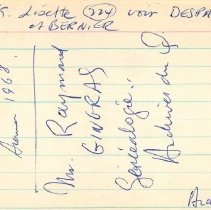 K. Lisette (224) voir DESPA
et BERNIER
1968
Mr. Raymond
GINGRAS
Généalogie
Archives du Q